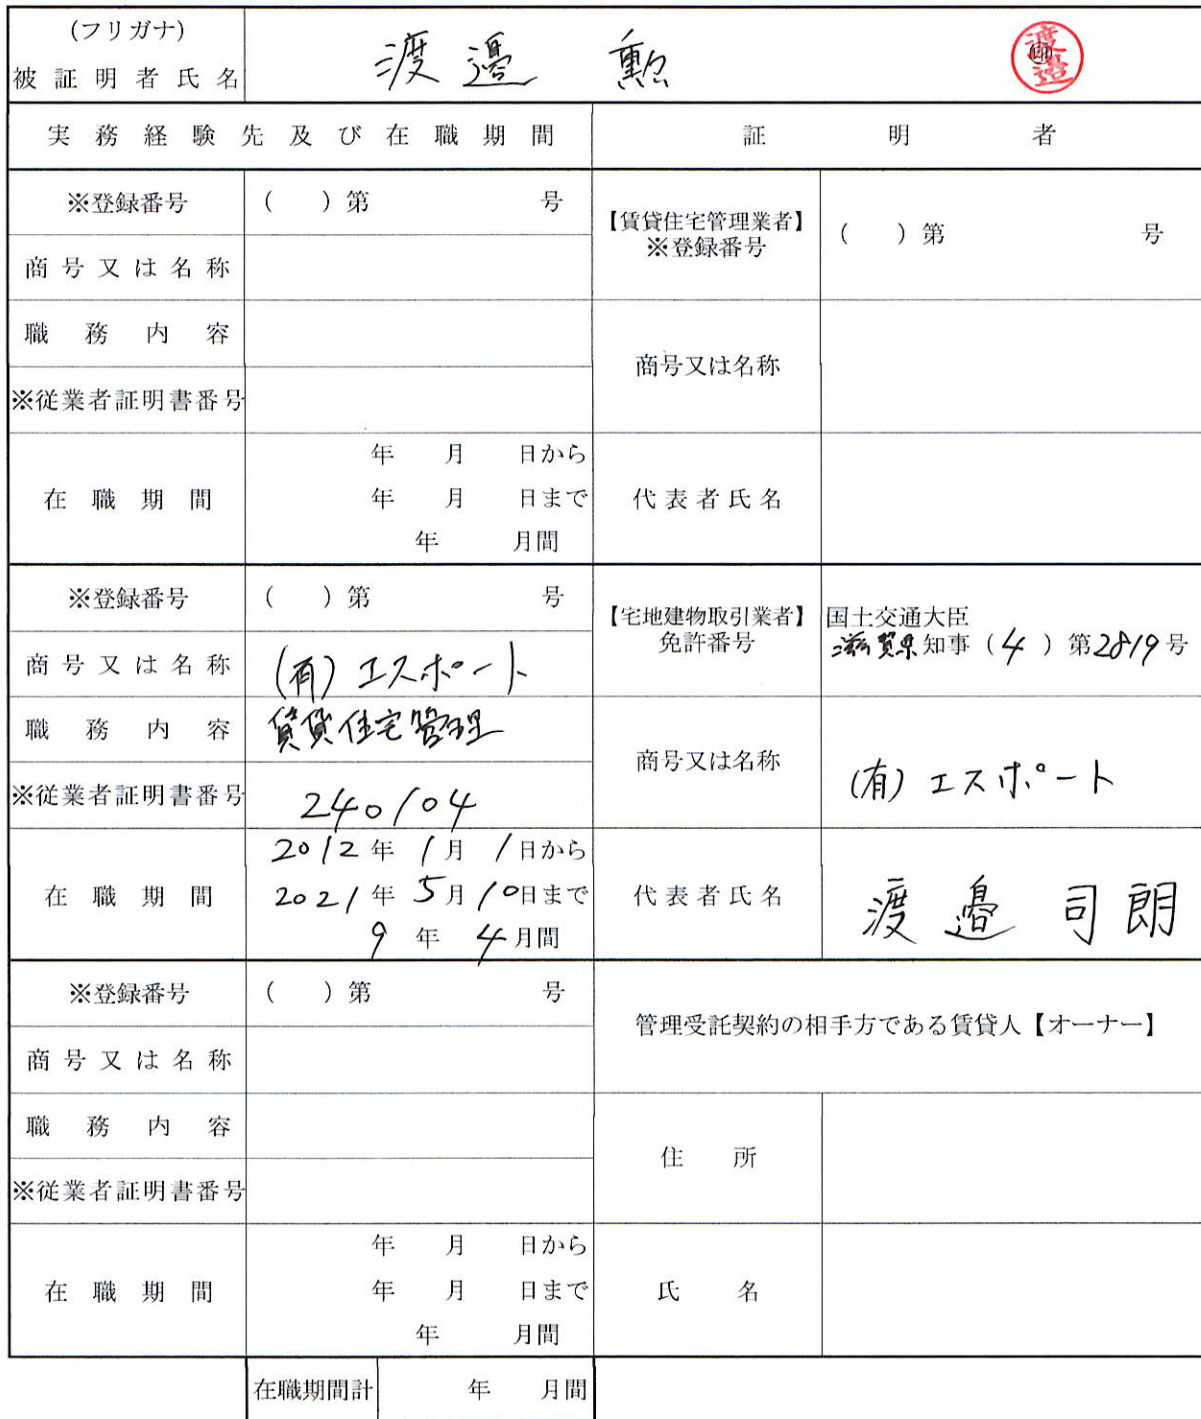 (フリガナ)
被証明者氏名 渡邉 勲 ㊞ 渡邉
実務経験先及び在職期間 証明者
※登録番号 ( )第 号
【賃貸住宅管理業者】
※登録番号 ( )第 号
商号又は名称
職務内容
商号又は名称
※従業者証明書番号
在職期間
年 月 日から
年 月 日まで
年 月間
代表者氏名
※登録番号 ( )第 号
【宅地建物取引業者】
免許番号
国土交通大臣
滋賀県知事(4)第2819号
商号又は名称 (有)エスポート
職務内容 賃貸住宅管理
商号又は名称 (有)エスポート
※従業者証明書番号 240104
在職期間
2012年1月1日から
2021年5月10日まで
9年4月間
代表者氏名 渡邉 司朗
※登録番号 ( )第 号
管理受託契約の相手方である賃貸人【オーナー】
商号又は名称
職務内容
住所
※従業者証明書番号
在職期間
年 月 日から
年 月 日まで
年 月間
氏名
在職期間計 年 月間